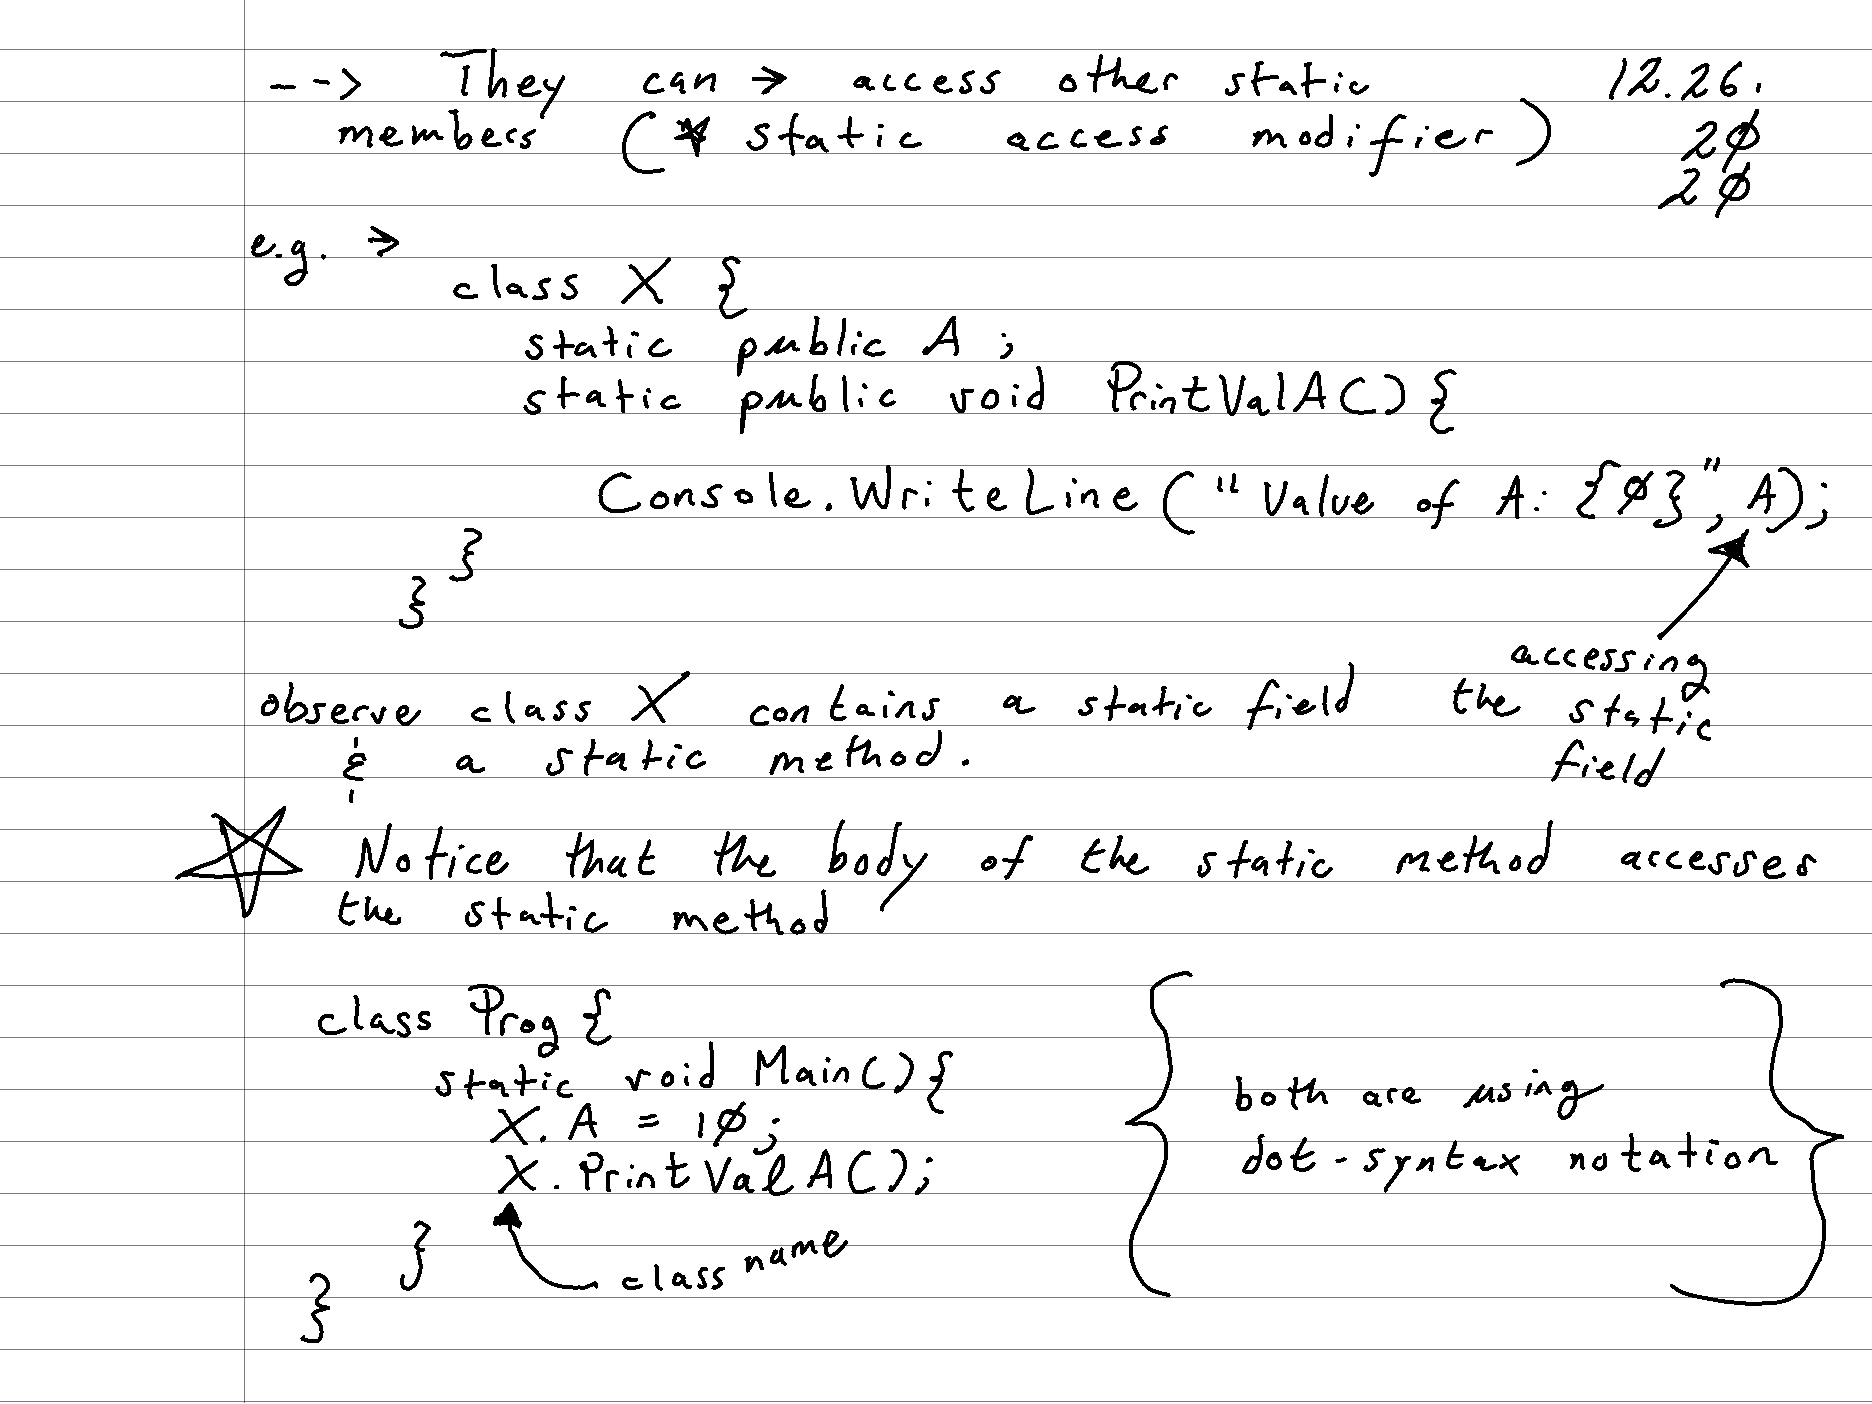 --> They can → access other static 12.26.
members (* static access modifier) 2∅
2∅
e.g. →
class X {
static public A ;
static public void PrintValA() {
Console.WriteLine ("Value of A: {∅}", A);
}
}
accessing
observe class X contains a static field the static
& a static method. field
☆ Notice that the body of the static method accesses
the static method
class Prog {
static void Main() {
X.A = 1∅;
X.PrintValA();
both are using
dot-syntax notation
} class name
}